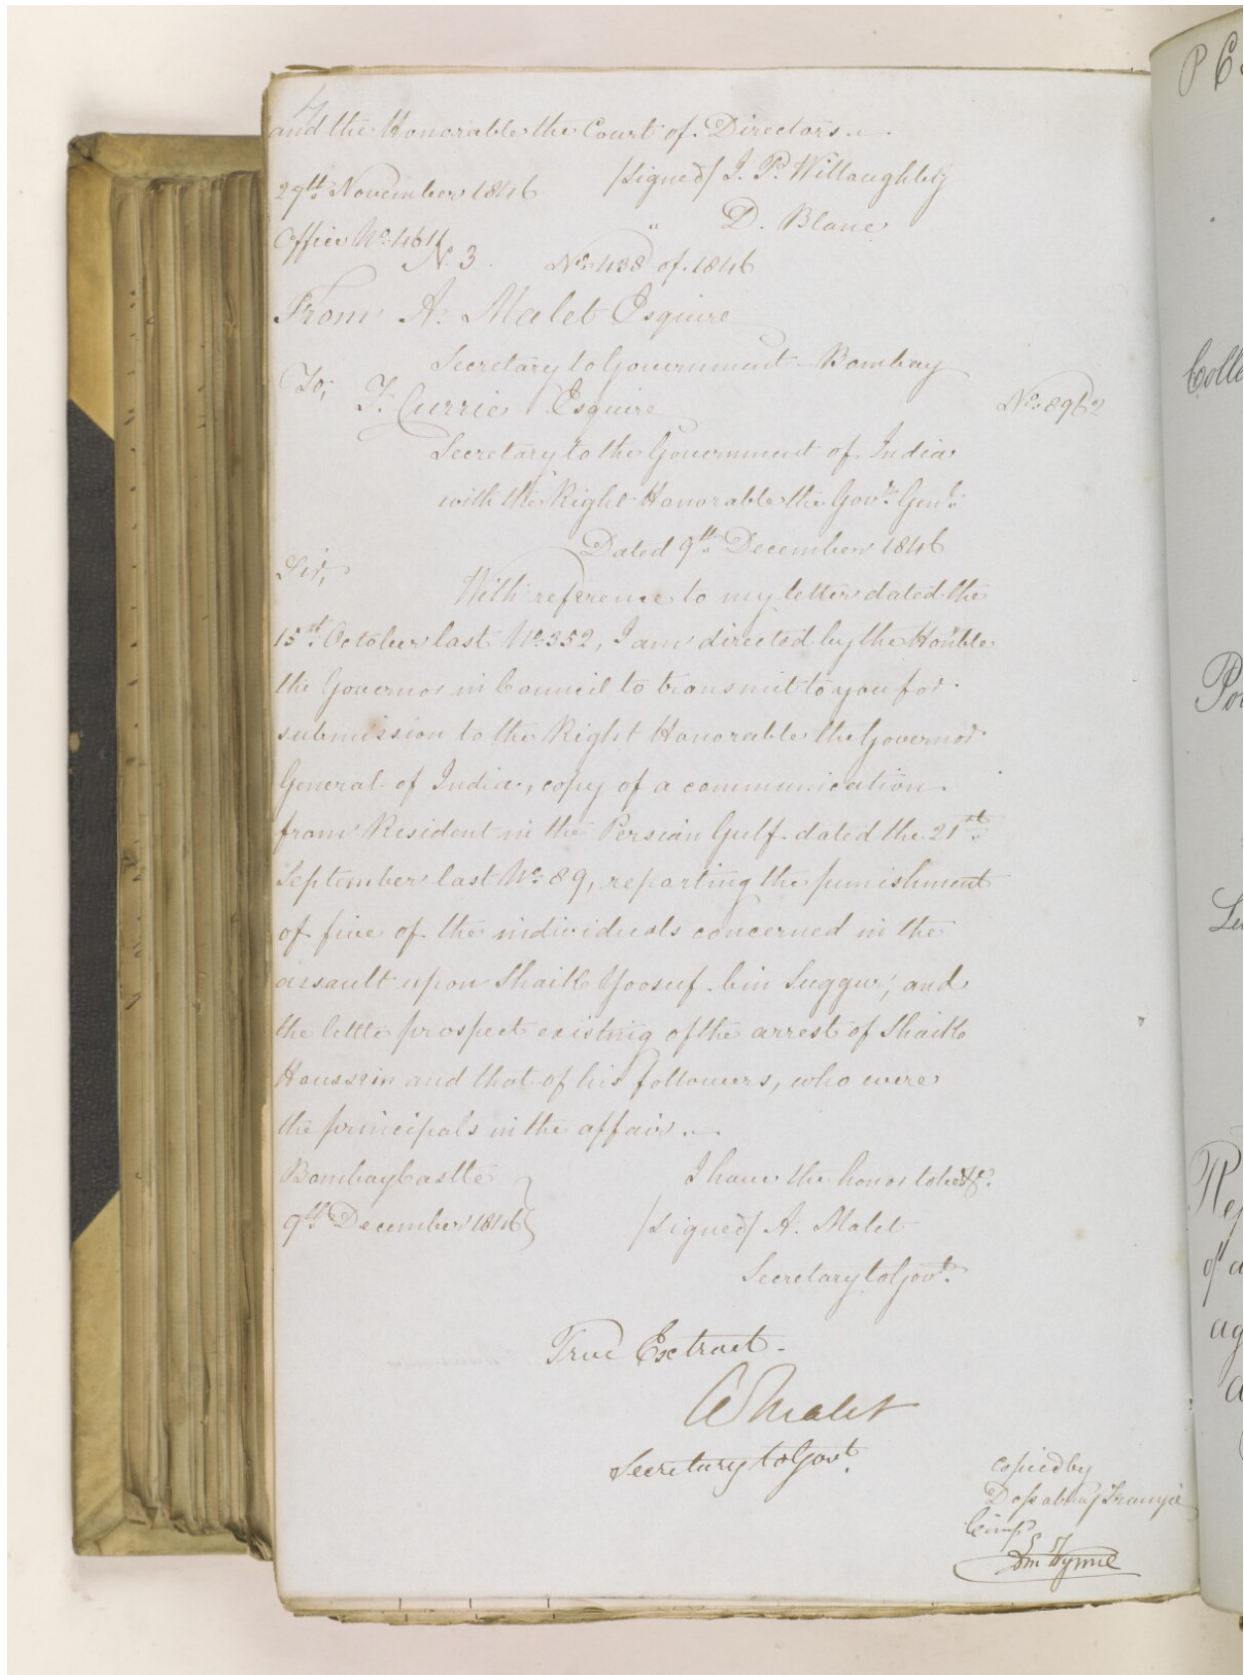 4
and the Honorable the Court of Directors.
/Signed/ J. P. Willoughby
29th November 1846
" D. Blane
Office No. 464
N. 3 No. 438 of 1846
From A. Malet Esquire
Secretary to Government Bombay
To,
F. Currie Esquire
No. 8962
Secretary to the Government of India
with the Right Honorable the Govr. Genl.
Dated 9th December 1846
Sir,
With reference to my letter dated the
15th October last No. 352, I am directed by the Honble
the Governor in Council to transmit to you for
submission to the Right Honorable the Governor
General of India, copy of a communication
from Resident in the Persian Gulf dated the 21st
September last No. 89, reporting the punishment
of five of the individuals concerned in the
assault upon Shaik Yoosuf bin Suggur, and
the little prospect existing of the arrest of Shaik
Houssein and that of his followers, who were
the principals in the affair.
Bombay Castle
I have the honor to be &c.
9th December 1846
/Signed/ A. Malet
Secretary to Govt.
True Extract
A Malet
Secretary to Govt.
Copied by
Dossabhoy Framjee
Comp